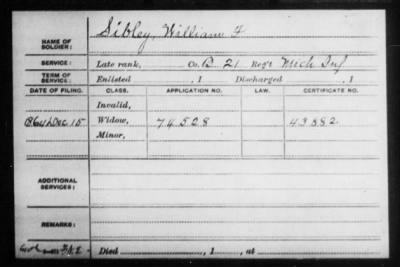 NAME OF SOLDIER: Sibley, William F
SERVICE: Late rank, Co. B. 21 Reg't Mich Inf
TERM OF SERVICE: Enlisted , 1 Discharged , 1
DATE OF FILING. CLASS. APPLICATION NO. LAW. CERTIFICATE NO.
Invalid,
1864 Dec 15 Widow, 74528 43882
Minor,
ADDITIONAL SERVICES:
REMARKS:
Died , 1 , at